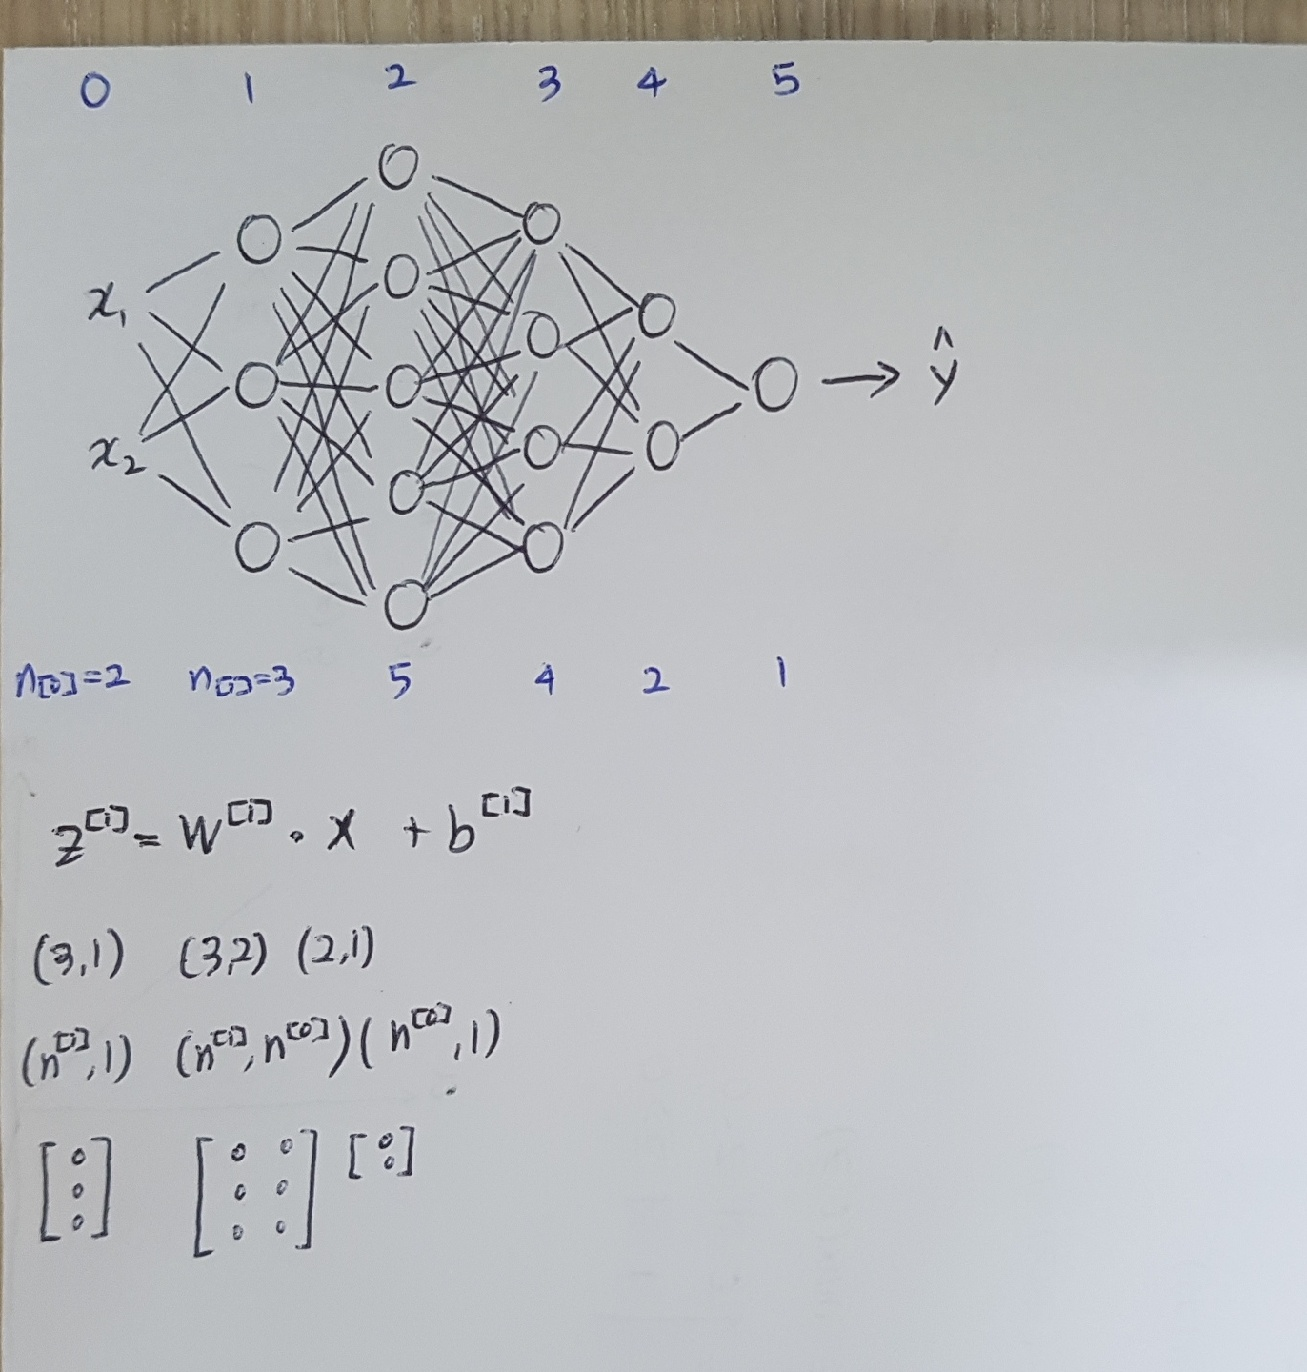 0 1 2 3 4 5
x₁
x₂
→ ŷ
n[0]=2 n[1]=3 5 4 2 1
z^[1] = W^[1] · X + b^[1]
(3,1) (3,2) (2,1)
(n^[1],1) (n^[1],n^[0]) (n^[0],1)